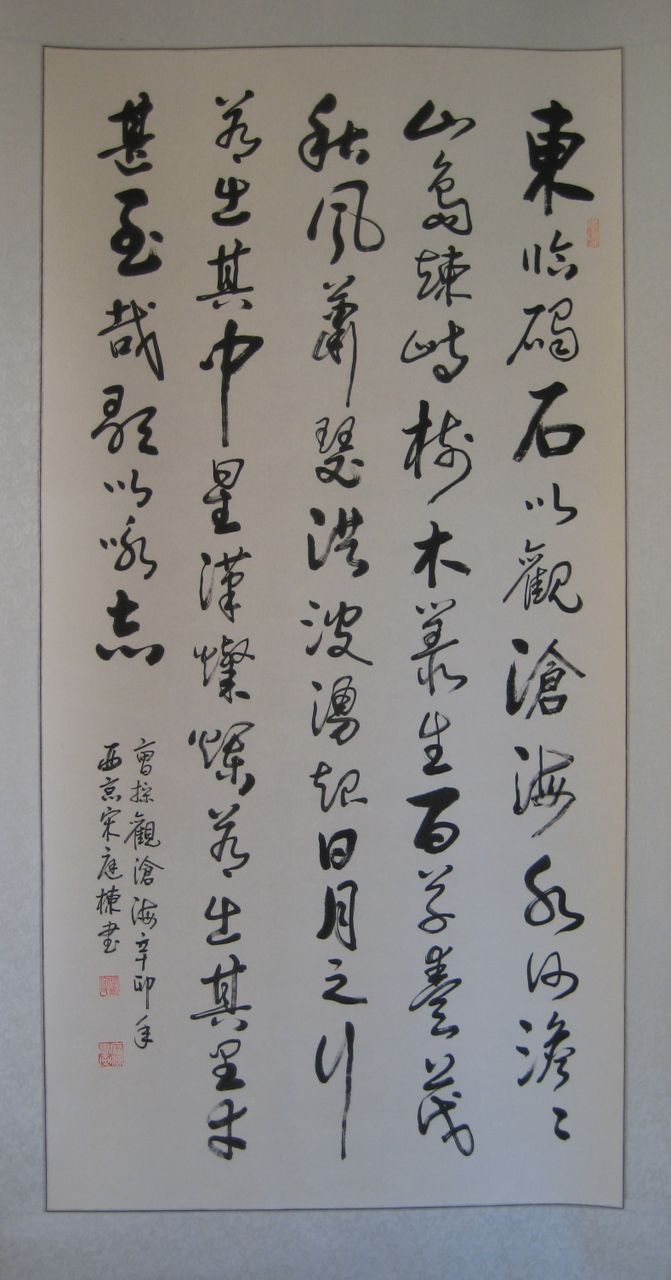 東臨碣石以觀滄海水何澹〻
山島竦峙樹木叢生百草豐茂
秋風蕭瑟洪波湧起日月之行
若出其中星漢燦爛若出其里幸
甚至哉歌以咏志
曹操觀滄海辛卯年
西京宋庭棟書